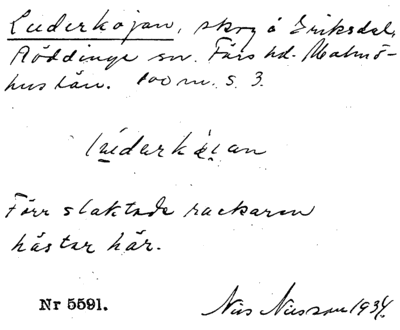 Luderkojan, skog å Eriksdal,
Röddinge sn. Färs hd. Malmö-
hus län. 100 m. S. 3.
Förr slaktade rackaren
hästar här.
Nr 5591. Nils Nilsson 1934.